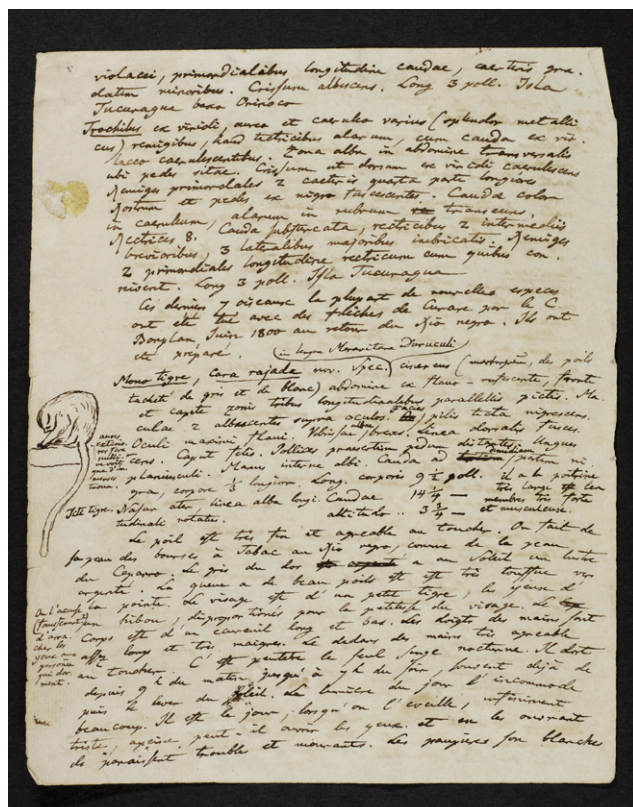 violacei, primordialibus longitudine caudae, caeteris gra-
datim minoribus. Crissum albescens. Long 3 poll. Isla
Tucuragua baxo Orinoco
Trochilus ex viridi, aureo et caeruleo varius (splendor metalli
cus) remigibus, haud tectricibus alarum, cum cauda ex vio-
laceo caerulescentibus. Zona alba in abdomine transversalis
ubi pedes sitae. Crissum ut dorsum ex viridi caerulescens
Remiges primordales 2 caeteris quarta parte longiores
Rostrum et pedes ex nigro fuscescentes. Caudae color
in caeruleum, alarum in rubrum transeuns.
Rectrices 8. Cauda subfurcata, rectricibus 2 intermediis
brevioribus, 3 lateralibus majoribus imbricatis. Remiges
2 primordiales longitudine rectricum cum quibus con-
niscent. Long 3 poll. Isla Tucuragua
Ces derniers 7 oiseaux la plupart de nouvelles especes
ont été tué avec des flêches de Curare par le C.
Bonplan, Juin 1800 au retour du Rio negro. Ils ont
été preparé.
(in lengua Maravitana Duruculi
Mono tigre, Cara rajada nov. Spec.) cinereus ( des poils
tacheté de gris et de blanc) abdomine ex flavo-rufescente, fronte
et capite zonis tribus longitudinalibus parallelis pictis. Ma-
culae 2 albescentes supra oculos. facies pilis tecta nigrescens.
Oculi maximi flavi. alba brevis. linea dorsalis fusca.
Caput felis. Pollices praesertim pedum distantes. Ungues
planiusculi. Manus interne albi Cauda ad partem ni-
gra, corpore 1/3 longior. Long. corporis 9 1/2 poll. il a la poitrine
Titi tigre. Nasus ater, linea alba longi- Caudae 14 1/4 — très large
tudinali notatus. altitudo .. 3 3/4 — membres très forts
et musculeuse.
Le poil est très fin et agreable au toucher. On fait de
sa peau des bourses à Tabac au Rio negro, comme de la peau
du Caparro. Le gris du dos a au Soleil un lustre
argenté. La queue a de beau poils et est très touffue vers
la pointe. Le visage est d'un petit tigre, les yeux d'
un hibou, disproportionés pour la petitesse du visage. Le
Corps est d'un ecureuil long et bas. Les doigts des mains sont
assez longs et très maigres. Le dedans des mains très agreable
au toucher. C'est peutetre le seul Singe nocturne. Il dort
depuis 9 h du matin jusqu'à 7 h du Soir, souvent dejà de-
puis le lever du Soleil. La lumière du jour l'incommode
beaucoup. Il est le jour, lorsqu'on l'eveille, infiniment
triste, peut-il ouvrir les yeux. et en les ouvrant
ils paraissent trouble et mourants. Les paupières son blanches
a l'accuse
faussement
d'arra-
cher les
yeux aux
personnes
qui dor-
ment.